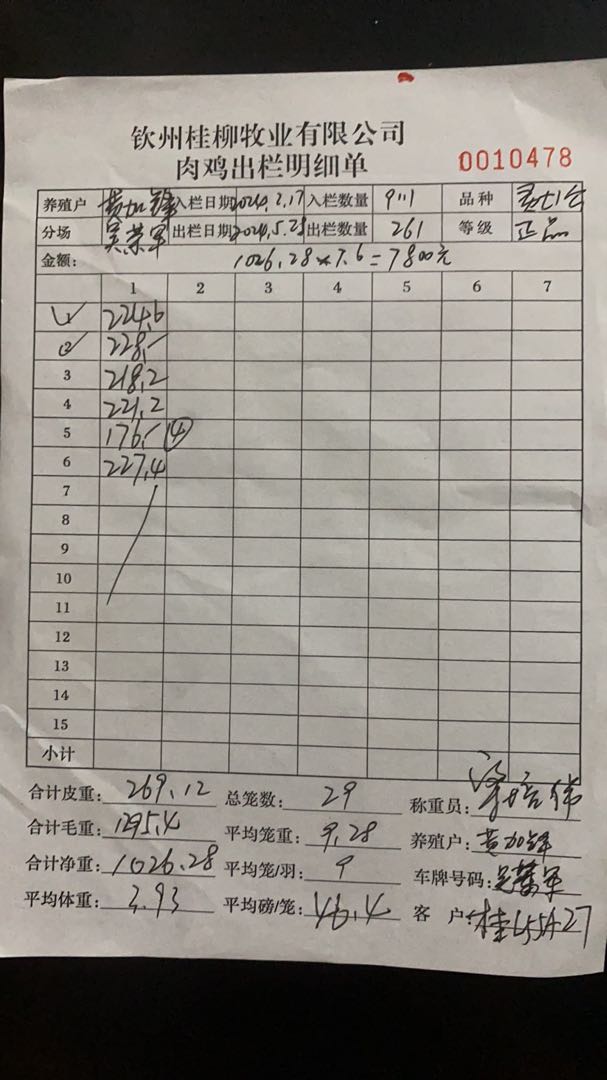 钦州桂柳牧业有限公司
肉鸡出栏明细单 0010478
养殖户 黄加锋 入栏日期 2024.2.17 入栏数量 9111 品种
分场 吴荣军 出栏日期 2024.5.28 出栏数量 261 等级 正品
金额: 1026.28×7.6=7800元
1 2 3 4 5 6 7
1 224.6
2 228.-
3 218.2
4 221.2
5 176.- ④
6 227.4
7
8
9
10
11
12
13
14
15
小计
合计皮重: 269.12 总笼数: 29 称重员:
合计毛重: 1295.4 平均笼重: 9.28 养殖户: 黄加锋
合计净重: 1026.28 平均笼/羽: 9 车牌号码: 吴荣军
平均体重: 3.93 平均磅/笼: 46.4 客 户: